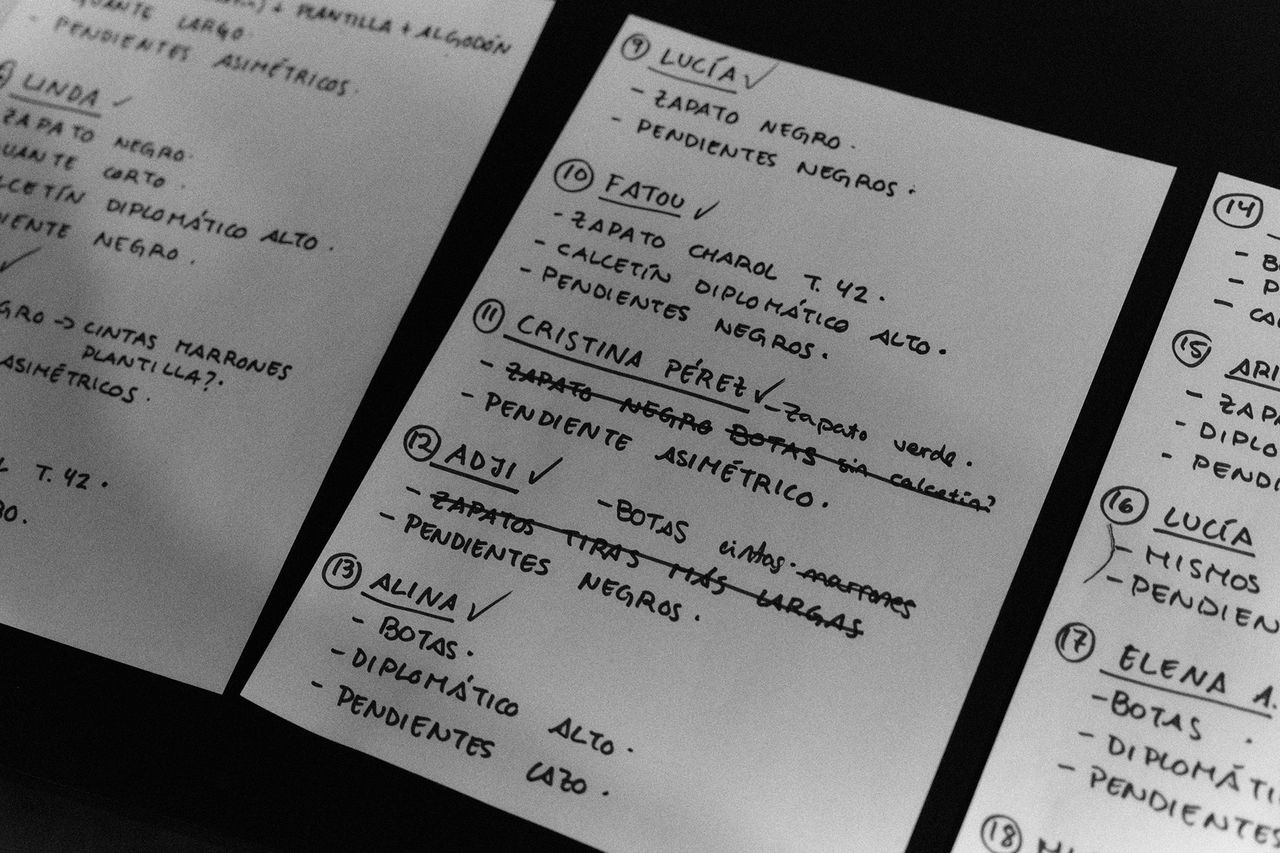 + PLANTILLA + ALGODÓN
LARGO
- PENDIENTES ASIMÉTRICOS.
LINDA ✓
ZAPATO NEGRO.
CORTO.
DIPLOMÁTICO ALTO.
NEGRO.
✓
→ CINTAS MARRONES
PLANTILLA?.
ASIMÉTRICOS.
T. 42.
9 LUCÍA ✓
- ZAPATO NEGRO.
- PENDIENTES NEGROS.
10 FATOU ✓
- ZAPATO CHAROL T. 42.
- CALCETÍN DIPLOMÁTICO ALTO.
- PENDIENTES NEGROS.
11 CRISTINA PÉREZ ✓ - Zapato verde.
- ZAPATO NEGRO BOTAS sin calcetín?
- PENDIENTE ASIMÉTRICO.
12 ADJI ✓ - BOTAS cintas. marrones
- ZAPATOS TIRAS MÁS LARGAS
- PENDIENTES NEGROS.
13 ALINA ✓
- BOTAS.
- DIPLOMÁTICO ALTO.
- PENDIENTES CAZO.
14
15
16 LUCÍA
- MISMOS
17 ELENA A.
- BOTAS.
- PENDIENTES
18